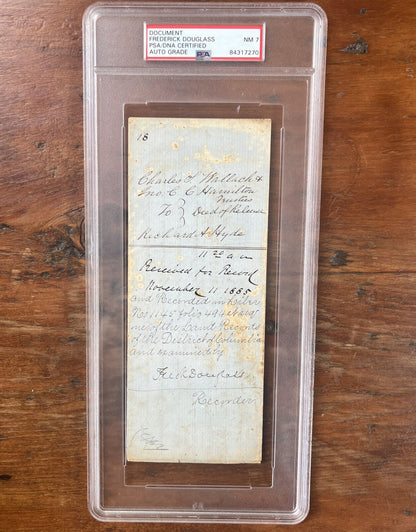 DOCUMENT NM 7
FREDERICK DOUGLASS
PSA/DNA CERTIFIED
AUTO GRADE PSA 84317270
18
Charles S. Wallach &
Jno. C. C. Hamilton
Trustees
To } Deed of Release
Richard A. Hyde
11 20 a m
Received for Record
November 11 1885
and Recorded in Liber
No. 1145 folio 494 et seq
one of the Land Records
of the District of Columbia
and examined by
Fredk Douglass
Recorder